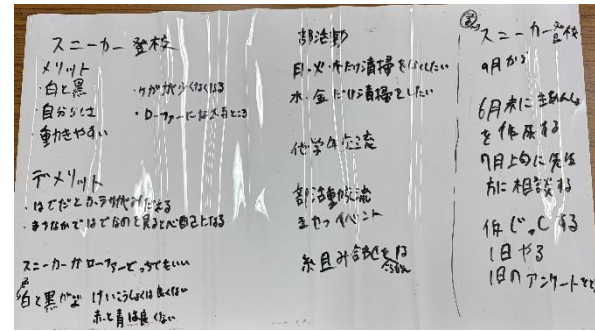 スニーカー登校
メリット
・白と黒
・自分らしさ
・動きやすい
・ケガが少くなくなる
・ローファーに
デメリット
・はでだとカラーが
・まちなかではでなのを見ると
スニーカーかローファーどっちでもいい
白と黒がよい けいこうしょくは良くない
赤と青は良くない
部活動
月・火・木だけ清掃をなくしたい
水・金だけ清掃をしたい
他学年交流
部活動交流
イベント
組み合わせをする
スニーカー登校
9月から
6月末に
を作成する
7月上旬に先生
方に相談する
する
1日やる
1日のアンケートをとる